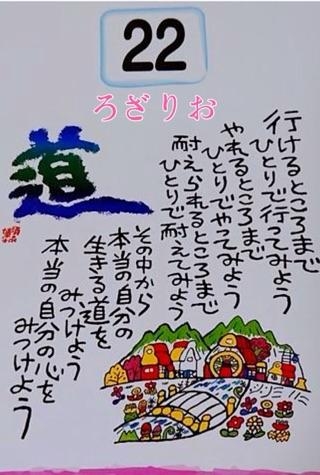 22
ろざりお
道
行けるところまで
ひとりで行ってみよう
やれるところまで
ひとりでやってみよう
耐えられるところまで
ひとりで耐えてみよう
その中から
本当の自分の
生きる道を
みつけよう
本当の自分の心を
みつけよう